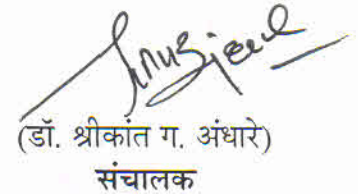 (डॉ. श्रीकांत ग. अंधारे)
संचालक